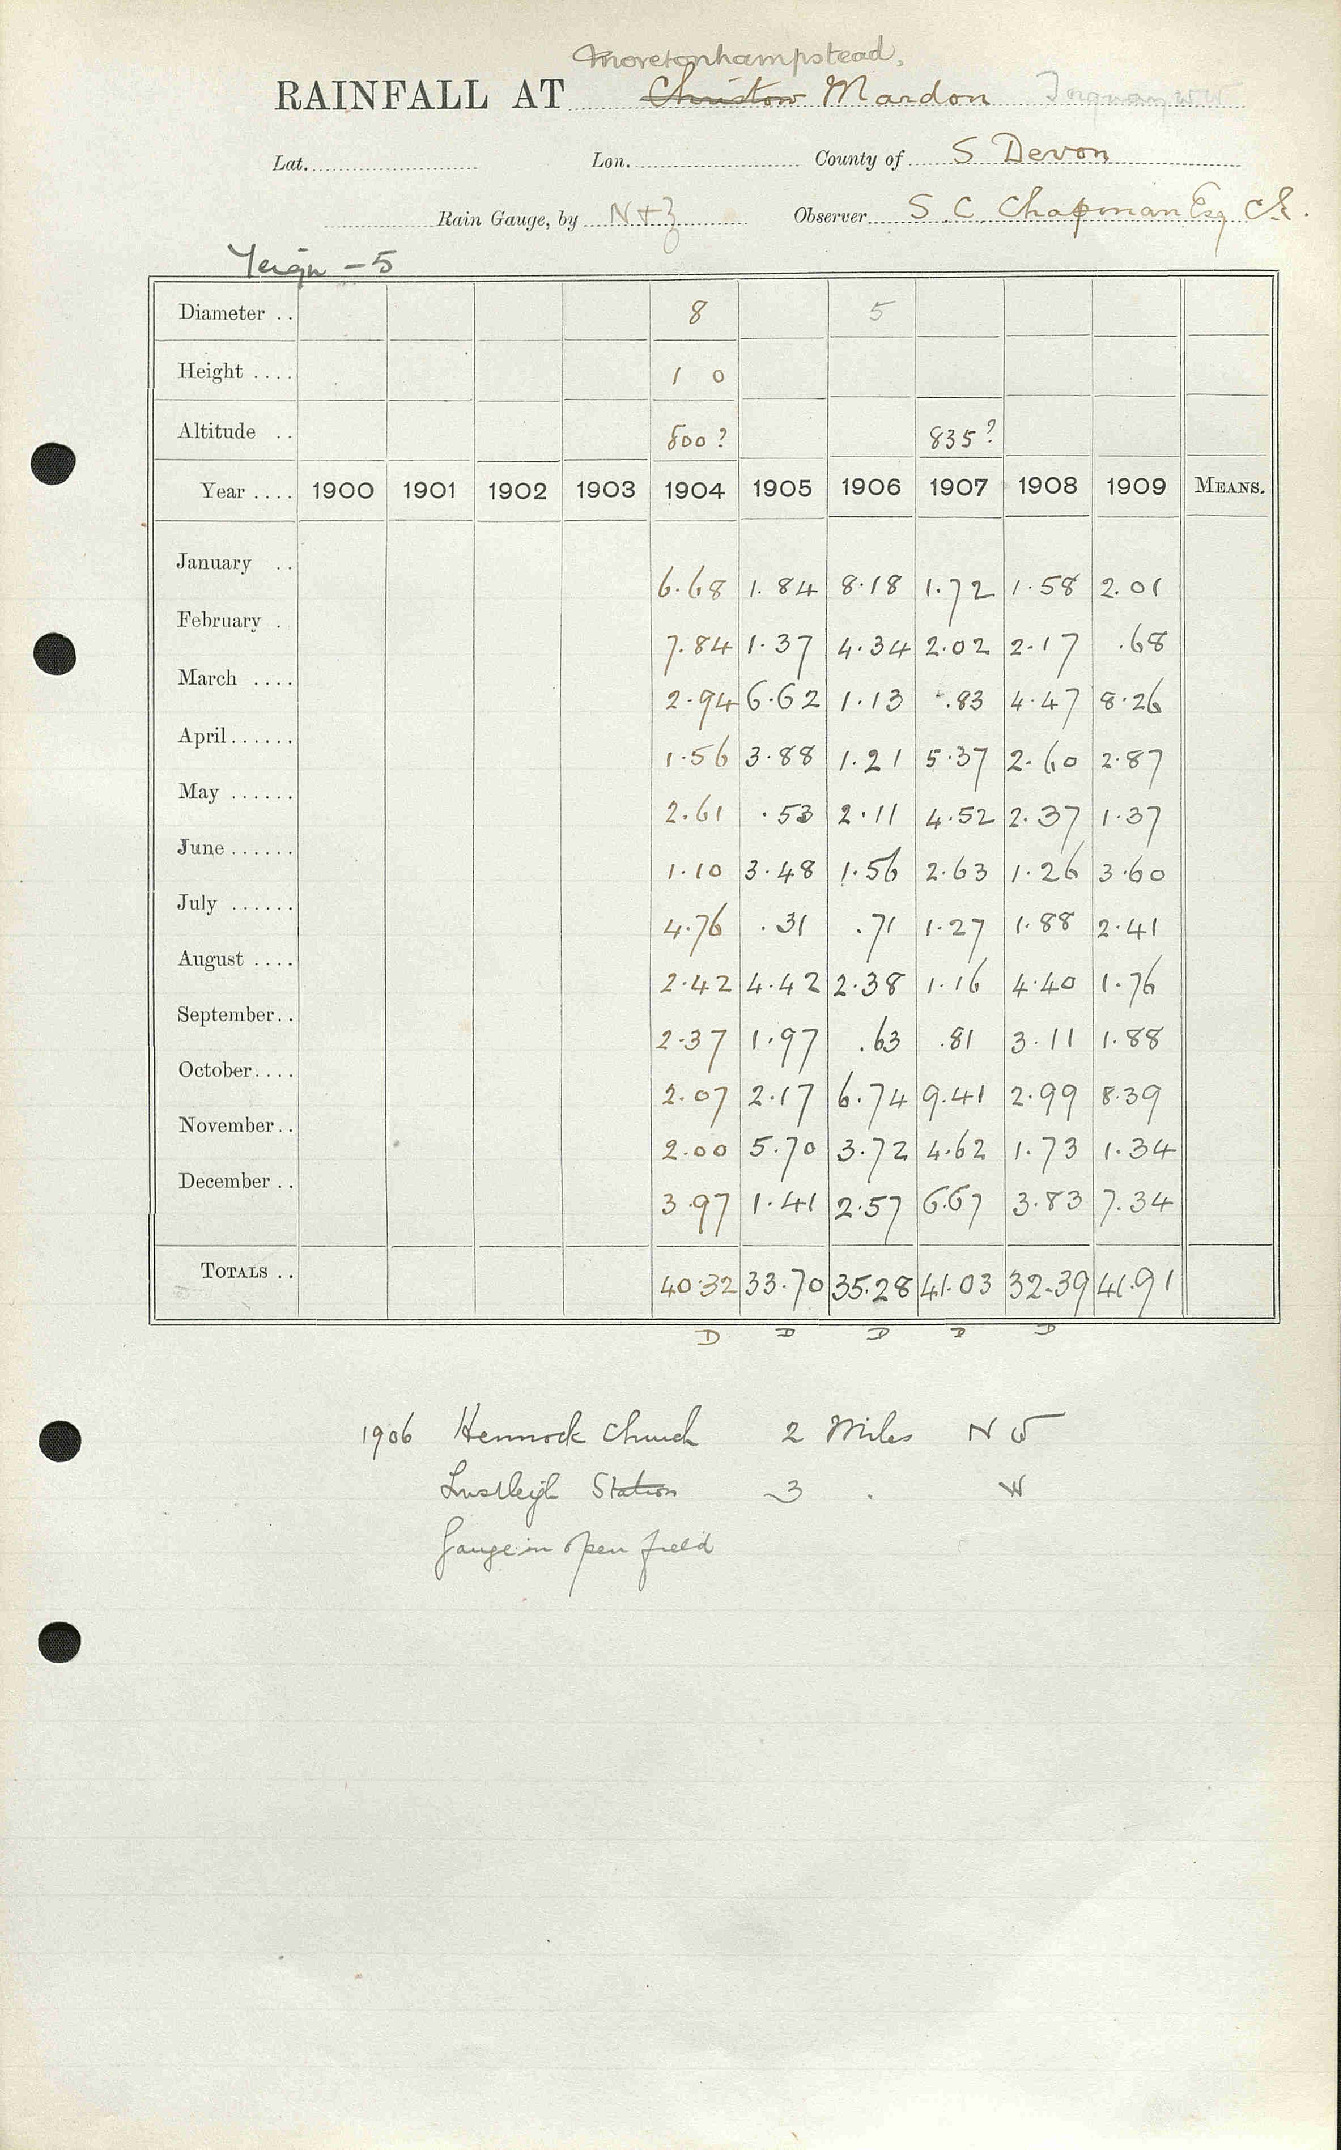 Moretonhampstead.
RAINFALL AT Christow Mardon Torquay W W
Lat. Lon. County of S Devon
Rain Gauge, by N+Z Observer S C Chapman Esq CE.
Teign - 5
Diameter .. 8 5
Height .... 1 0
Altitude .. 800? 835?
Year .... 1900 1901 1902 1903 1904 1905 1906 1907 1908 1909 MEANS.
January .. 6.68 1.84 8.18 1.72 1.58 2.01
February . 7.84 1.37 4.34 2.02 2.17 .68
March .... 2.94 6.62 1.13 .83 4.47 8.26
April...... 1.56 3.88 1.21 5.37 2.60 2.87
May ...... 2.61 .53 2.11 4.52 2.37 1.37
June ...... 1.10 3.48 1.56 2.63 1.26 3.60
July ...... 4.76 .31 .71 1.27 1.88 2.41
August .... 2.42 4.42 2.38 1.16 4.40 1.76
September.. 2.37 1.97 .63 .81 3.11 1.88
October.... 2.07 2.17 6.74 9.41 2.99 8.39
November.. 2.00 5.70 3.72 4.62 1.73 1.34
December .. 3.97 1.41 2.57 6.67 3.83 7.34
TOTALS .. 40.32 33.70 35.28 41.03 32.39 41.91
D D D D D
1906 Hennock Church 2 Miles N W
Lustleigh Station 3 . W
Gauge in open field